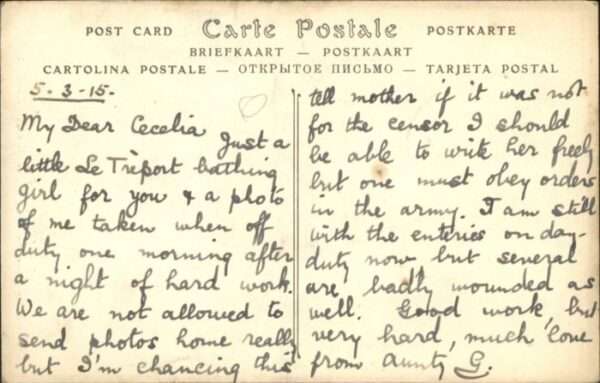 POST CARD Carte Postale POSTKARTE
BRIEFKAART — POSTKAART
CARTOLINA POSTALE — ОТКРЫТОЕ ПИСЬМО — TARJETA POSTAL
5.3.15.
My Dear Cecelia Just a
little Le Trèport bathing
girl for you & a photo
of me taken when off
duty one morning after
a night of hard work.
We are not allowed to
send photos home really
but I'm chancing this
tell mother if it was not
for the censor I should
be able to write her freely
but one must obey orders
in the army. I am still
with the enteries on day-
duty now but several
are badly wounded as
well. Good work, but
very hard, much love
from Aunty G.